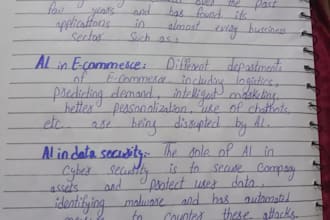 over the past
few years and has found its
applications in almost every bussiness
sector such as:
AI in E-commerce: Different departments
of E-commerce including logistics,
predicting demand, intelligent marketing,
better personalization, use of chatbots
etc are being disrupted by AI.
AI in data security:- The role of AI in
cyber security is to secure company
assets and protect user data.
identifying malware and has automated
to counter these attacks.